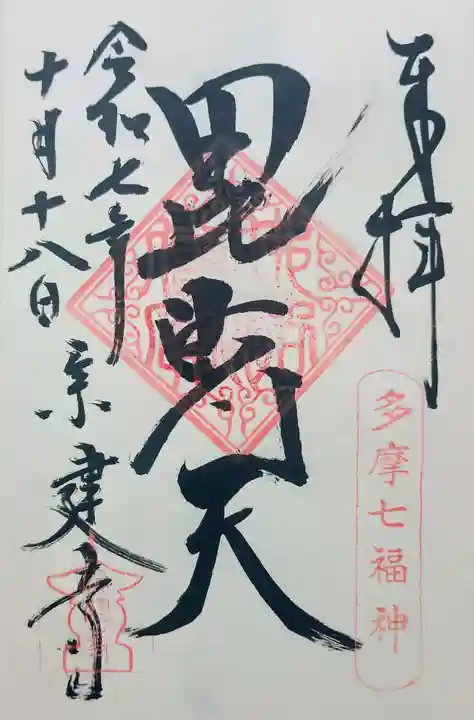 奉拝
多摩七福神
毘沙门天
令和七年
十月十八日
宗建寺